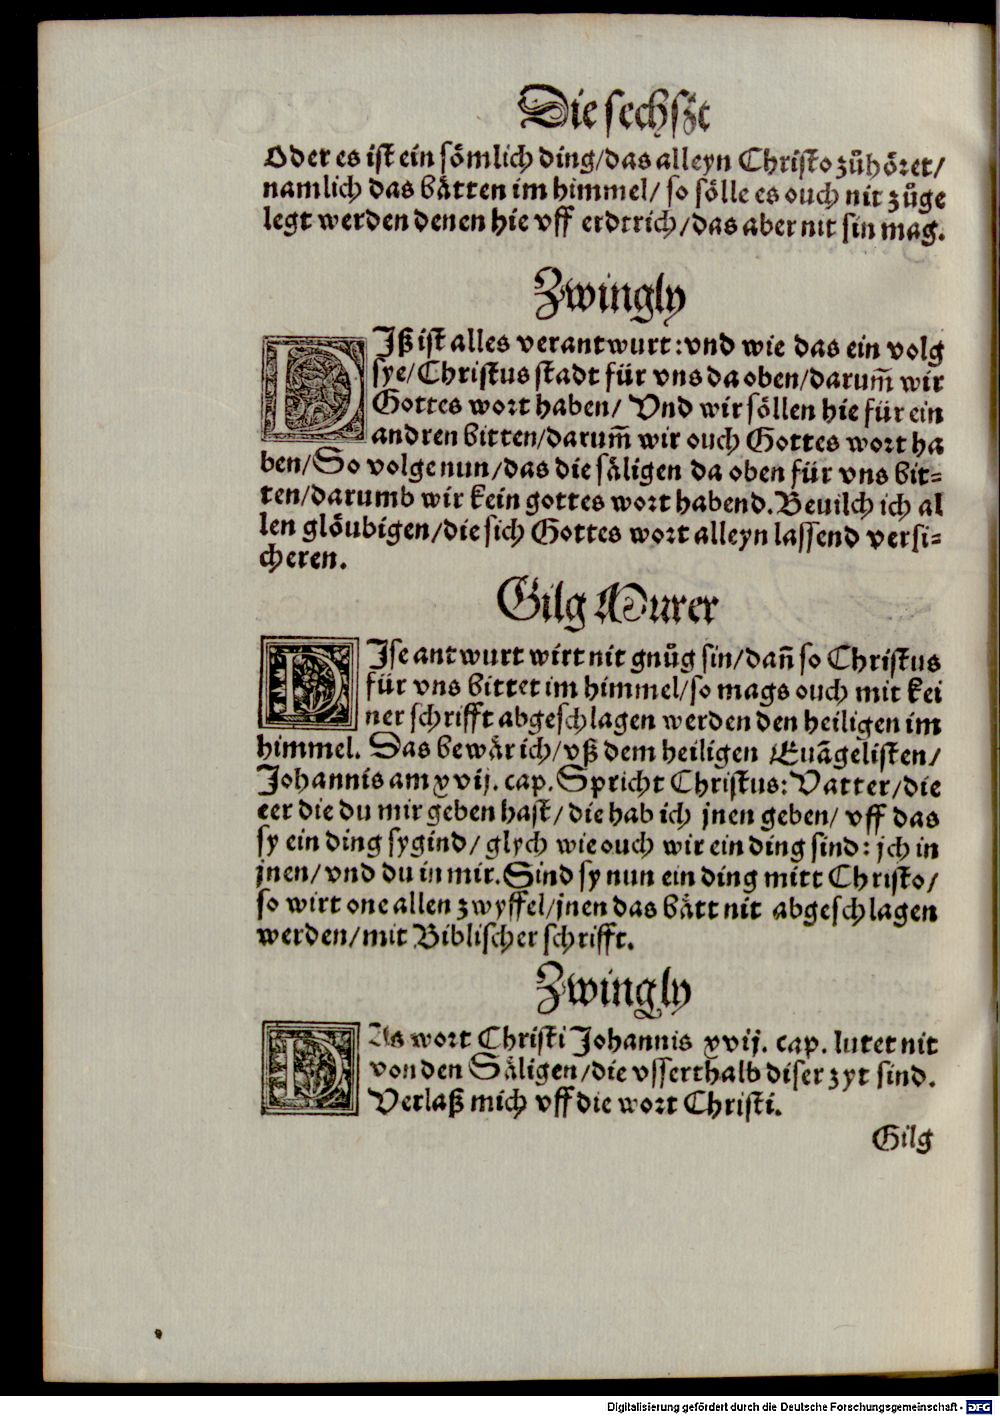 Die sechszt
Oder es ist ein sömlich ding/das alleyn Christo zůhöret/
namlich das bätten im himmel/ so sölle es ouch nit zůge
legt werden denen hie vff erdtrich/das aber nit sin mag.
Zwingly
DIß ist alles verantwurt: vnd wie das ein volg
sye/Christus stadt für vns da oben/darum̄ wir
Gottes wort haben/ Vnd wir söllen hie für ein
andren bitten/darum̄ wir ouch Gottes wort ha
ben/So volge nun/das die säligen da oben für vns bit-
ten/darumb wir kein gottes wort habend. Beuilch ich al
len glöubigen/die sich Gottes wort alleyn lassend versi-
cheren.
Gilg Murer
DIse antwurt wirt nit gnůg sin/dan̄ so Christus
für vns bittet im himmel/so mags ouch mit kei
ner schrifft abgeschlagen werden den heiligen im
himmel. Das bewär ich/vß dem heiligen Euāgelisten/
Johannis am xvij. cap. Spricht Christus: Vatter/die
eer die du mir geben hast/die hab ich jnen geben/ vff das
sy ein ding sygind/ glych wie ouch wir ein ding sind: ich in
jnen/ vnd du in mir. Sind sy nun ein ding mitt Christo/
so wirt one allen zwyffel/jnen das bätt nit abgeschlagen
werden/mit Biblischer schrifft.
Zwingly
DAs wort Christi Johannis xvij. cap. lutet nit
von den Säligen/die vsserthalb diser zyt sind.
Verlaß mich vff die wort Christi.
Gilg
Digitalisierung gefördert durch die Deutsche Forschungsgemeinschaft - DFG